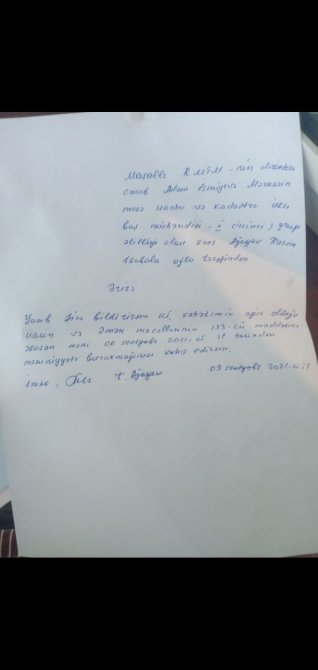 Masallı RMTM-nin direktoru
cənab Adəm İsmiyevə Mərkəzin
meşə uçotu və kadastrı üzrə
baş mühəndisi - I (birinci) qrup
əlilliyi olan şəxs Ağayev
oğlu tərəfindən
Ərizə
Yazıb Sizə bildirirəm ki, səhhətimin ağır olduğu
üçün və Əmək məcəlləsinin 133-cü maddəsinə
əsasən məni 06 sentyabr 2021-ci il tarixdən
məzuniyyətə buraxmağınızı xahiş edirəm.
imza: Ağayev 03 sentyabr 2021-ci il